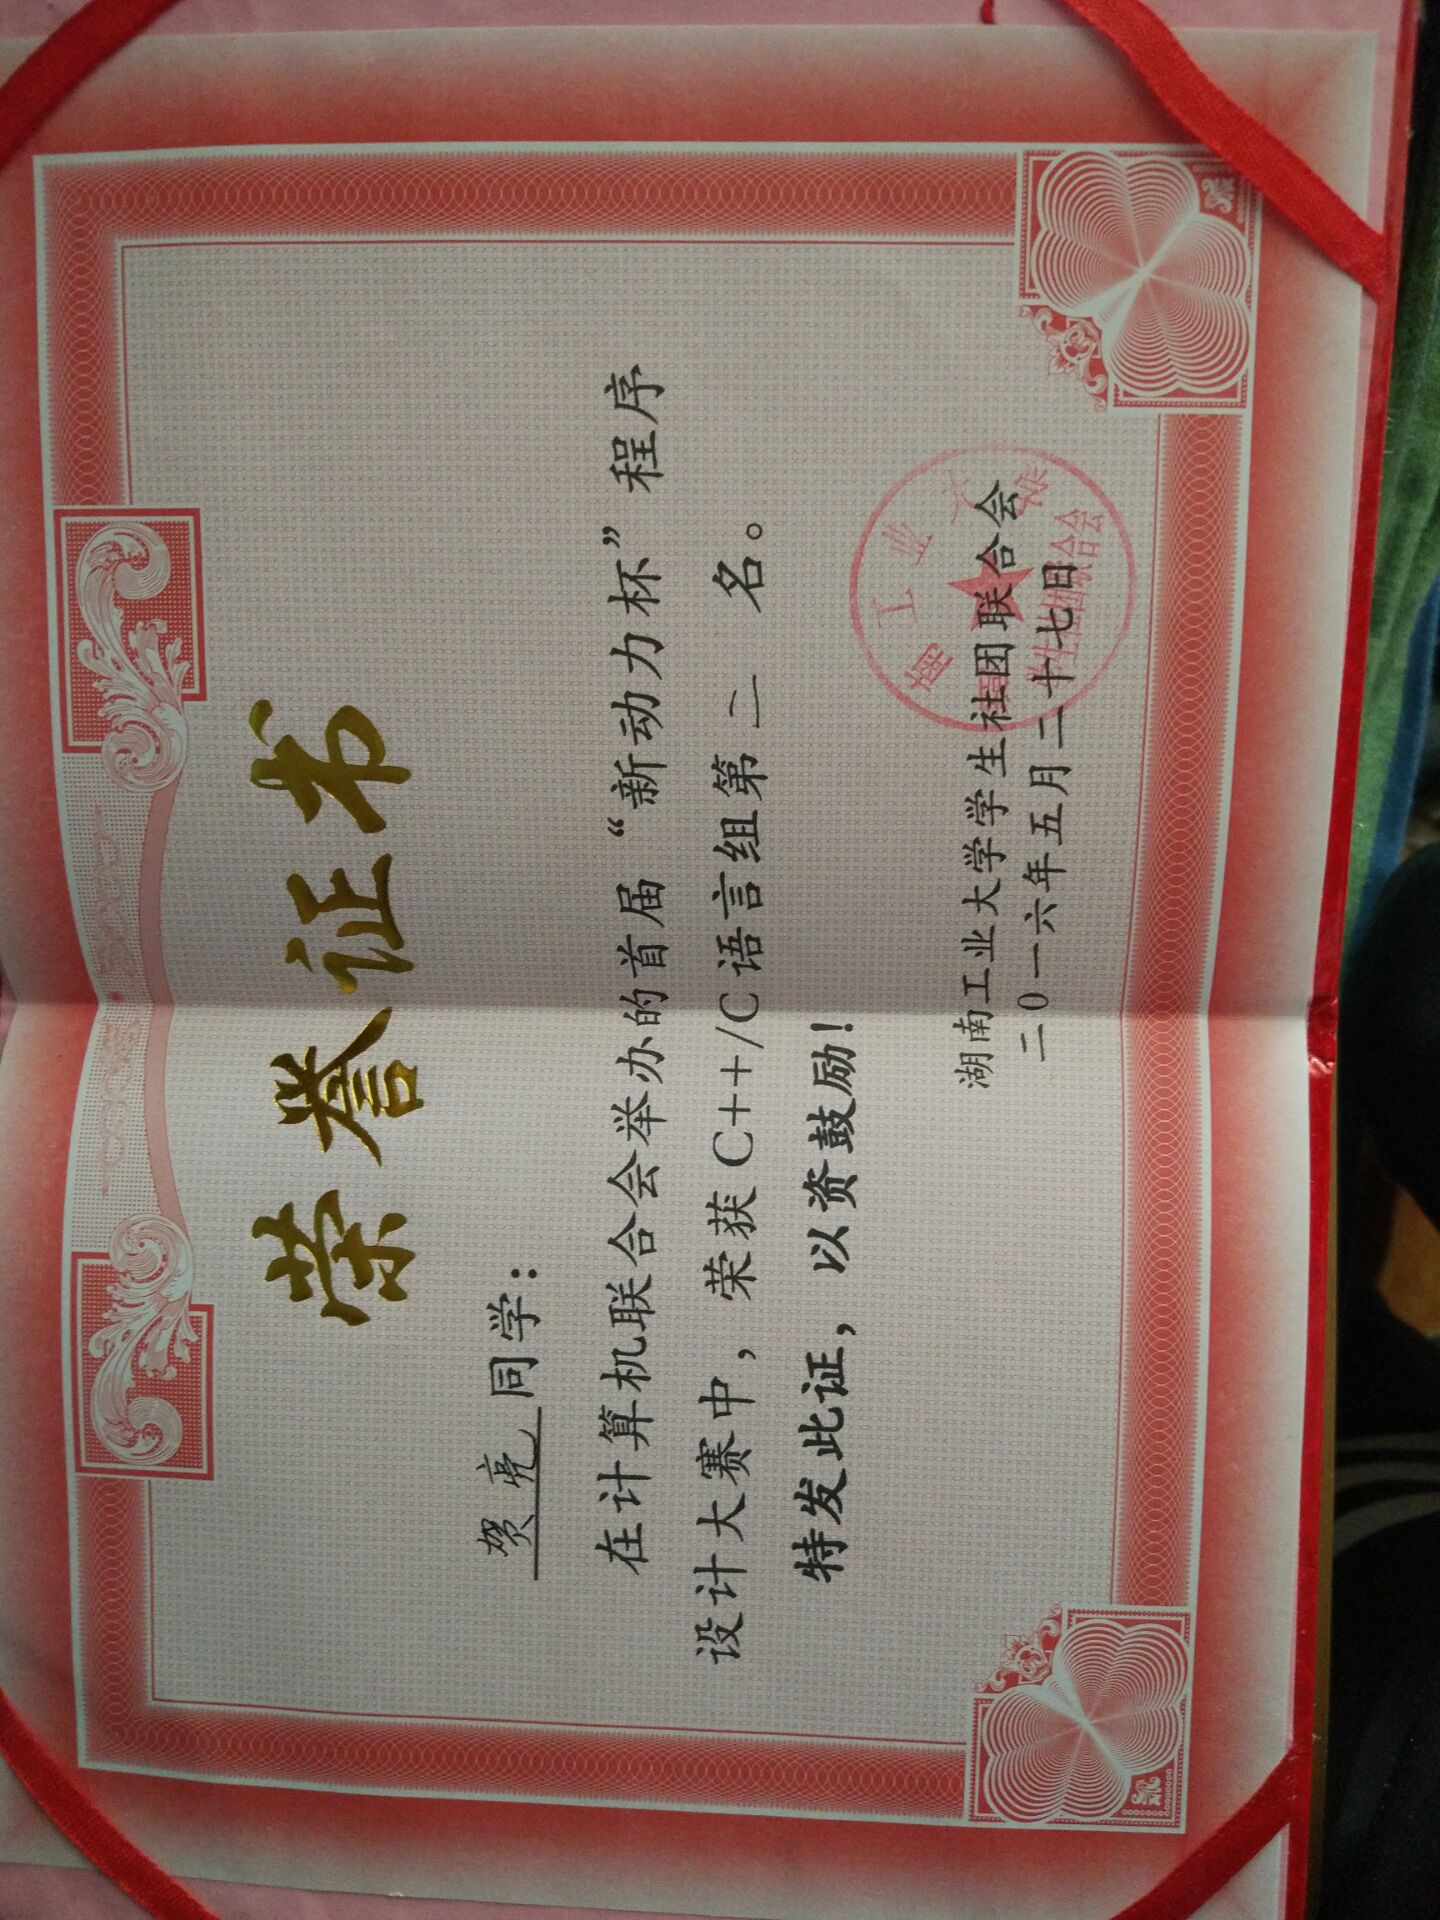 荣誉证书
贺亮同学：
在计算机联合会举办的首届“新动力杯”程序
设计大赛中，荣获C++/C语言组第二名。
特发此证，以资鼓励！
湖南工业大学学生社团联合会
二0一六年五月二十七日
南工业大学
学生社团联合会